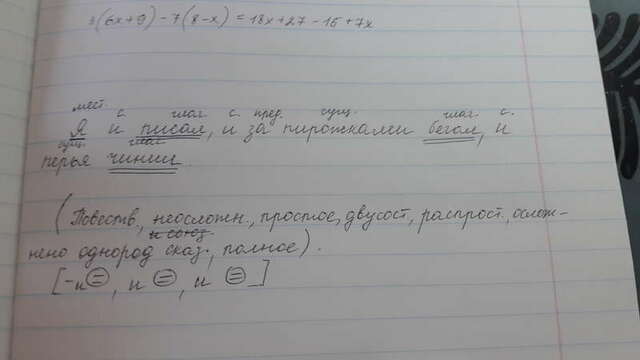 3(6x+9)-7(8-x)=18x+27-15+7x
мест. с. глаг. с. пред. сущ. глаг. с.
Я и писал, и за пирожками бегал, и
сущ. глаг.
перья чинил
(Повеств, неосложн., простое, двусост, распрост, ослож-
и союз.
нено однород сказ., полное).
[- и =, и =, и =_]